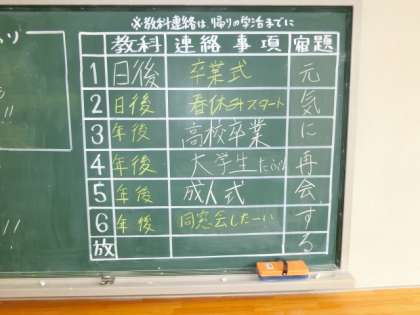 ※教科連絡は帰りの学活までに
教科 連絡事項 宿題
1 日後 卒業式 元
2 日後 春休みスタート 気
3 年後 高校卒業 に
4 年後 大学生 再
5 年後 成人式 会
6 年後 同窓会したーい す
放 る
!!